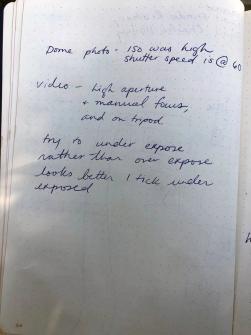 Dome photo - ISO was high
shutter speed is @ 60
video - high aperture
+ manual focus,
and on tripod
try to under expose
rather than over expose
looks better 1 tick under
exposed